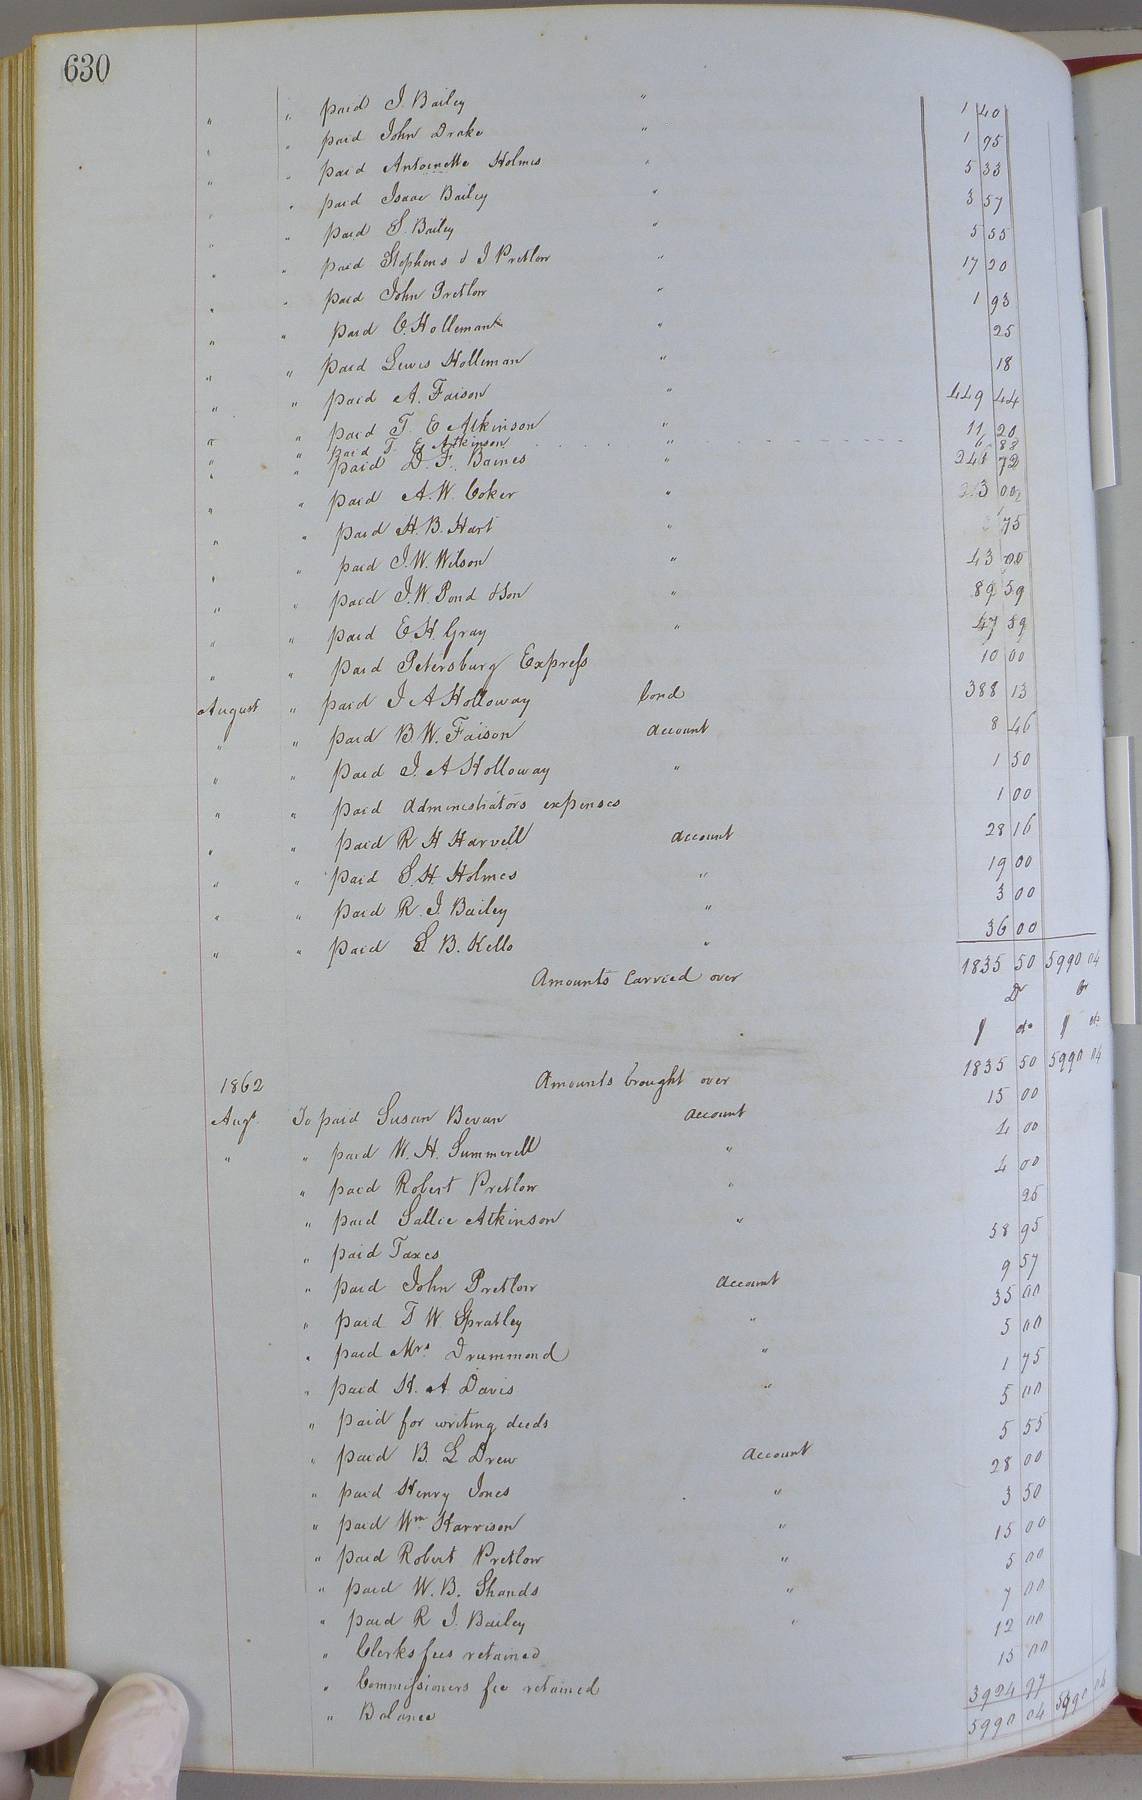 630
" " paid J. Bailey " 1 40
" " paid John Drake " 1 75
" " paid Antoinette Holmes " 5 33
" " paid Isaac Bailey " 3 57
" " paid S. Bailey " 5 55
" " paid Stephens & J Pretlow " 17 20
" " paid John Pretlow " 1 93
" " paid C. Holleman " 25
" " paid Lewis Holliman " 18
" " paid A. Faison " 449 44
" " paid T E Atkinson " 11 20
" " paid T. E. Atkinson " 6 88
" " paid D. F. Baines " 72
" " paid A. W. Coker "
" " paid H. B. Hart " 75
" " paid J. W. Wilson " 43 00
" " paid J. W. Pond & Son " 89 59
" " paid E H. Gray " 47 89
" " paid Petersburg Express 10 00
August " paid J A Holloway bond 388 13
" " paid B W. Faison account 8 46
" " paid J. A Holloway " 1 50
" " paid administrators expenses 1 00
" " paid R H Harvell account 28 16
" " paid S. H. Holmes " 19 00
" " paid R. J. Bailey " 3 00
" " paid S. B. Kello " 36 00
Amounts carried over 1835 50 5990 04
Dr Cr
$ cts $ cts
1862 Amounts brought over 1835 50 5990 04
Augt To paid Susan Bevan account 15 00
" " paid W. H. Summerell " 4 00
" paid Robert Pretlow " 4 00
" paid Sallie Atkinson " 25
" paid Taxes 58 95
" paid John Pretlow account 9 57
" paid T W. Spratley " 35 00
" paid Mrs Drummond " 5 00
" paid H. A. Davis " 1 75
" paid for writing deeds 5 00
" paid B. L Drew account 5 55
" paid Henry Jones " 28 00
" paid Wm Harrison " 3 50
" paid Robert Pretlow " 15 00
" paid W. B. Shands " 5 00
" paid R J. Bailey " 7 00
" Clerks fees retained 12 00
" Commissioners fee retained 15 00
" Balance 3924 97
5990 04 5990 04